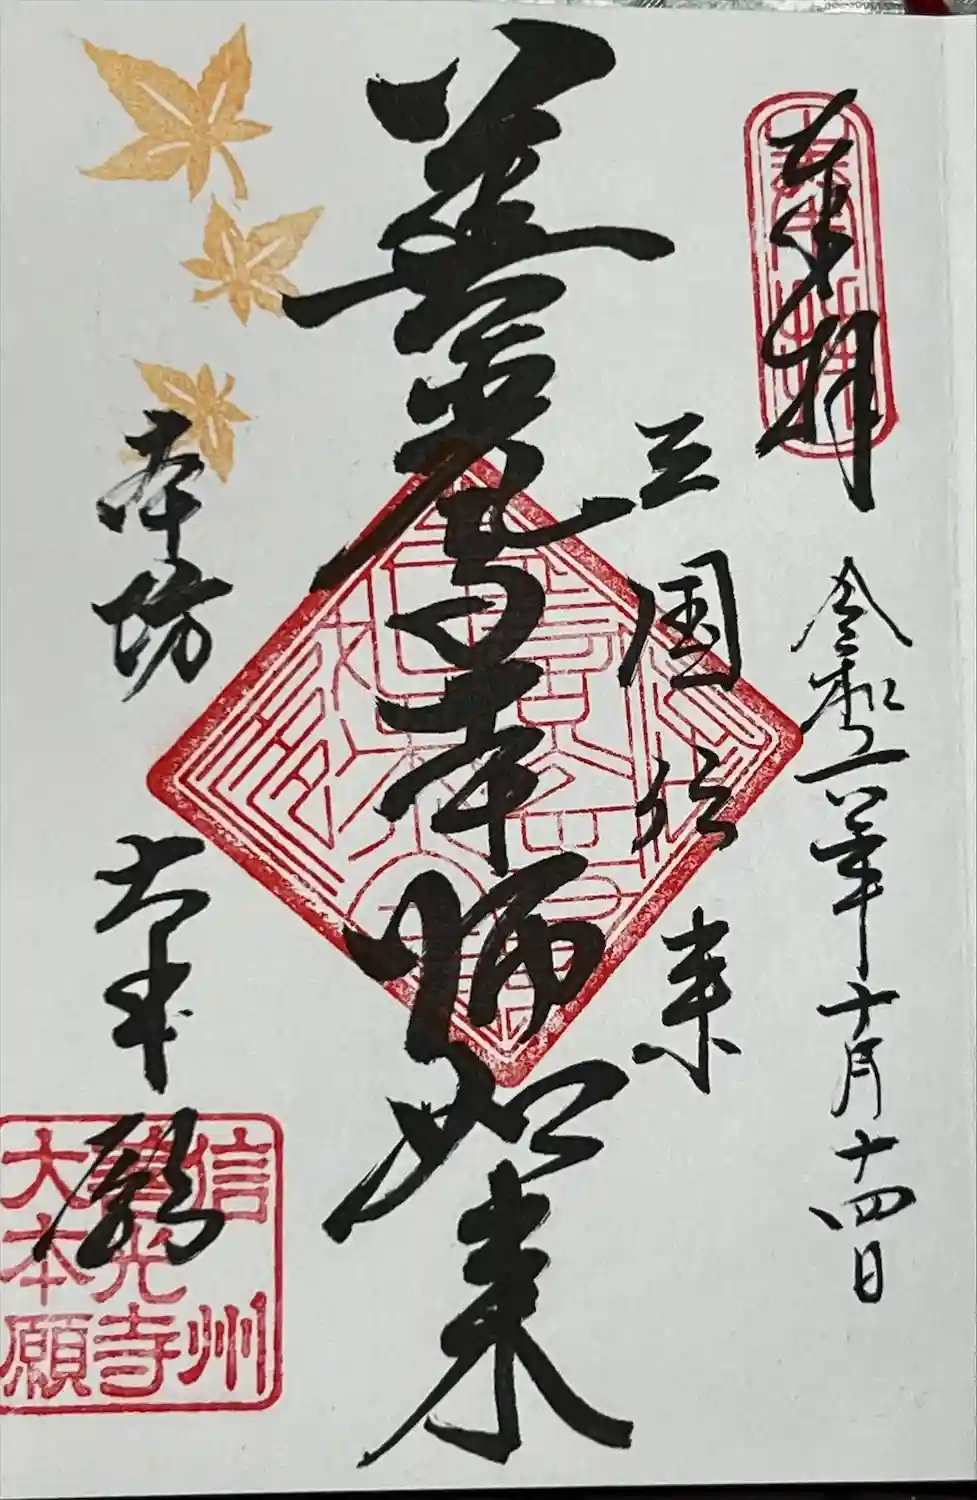 奉拝
令和六年十月十四日
三国伝来
善光寺如来
本坊 大本願
信州
善光寺
大本願